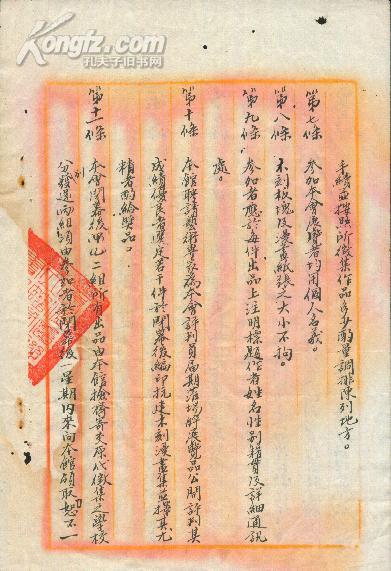 Kongfz.com
孔夫子旧书网
手續並按照所徵集作品多少酌量調排陳列地方。
第七條 參加本會展覽者均用個人名義。
第八條 木刻板塊及漫畫紙張之大小不拘。
第九條 參加者應於每件出品上注明標題作者姓名性别籍貫及詳細通訊
處。
第十條 本館聘請藝術專家為本會評判員屆期蒞場將展覽品公開評判其
成績優良者選定若干件於閉幕後編印抗建木刻漫畫集並擇其尤
精者酌給獎品。
第十一條 本會閉幕後甲乙二組所有出品由本館撿齊寄交原代徵集之學校
分别發還丙組須由參加者於閉幕後一星期内來向本館領取恕不一